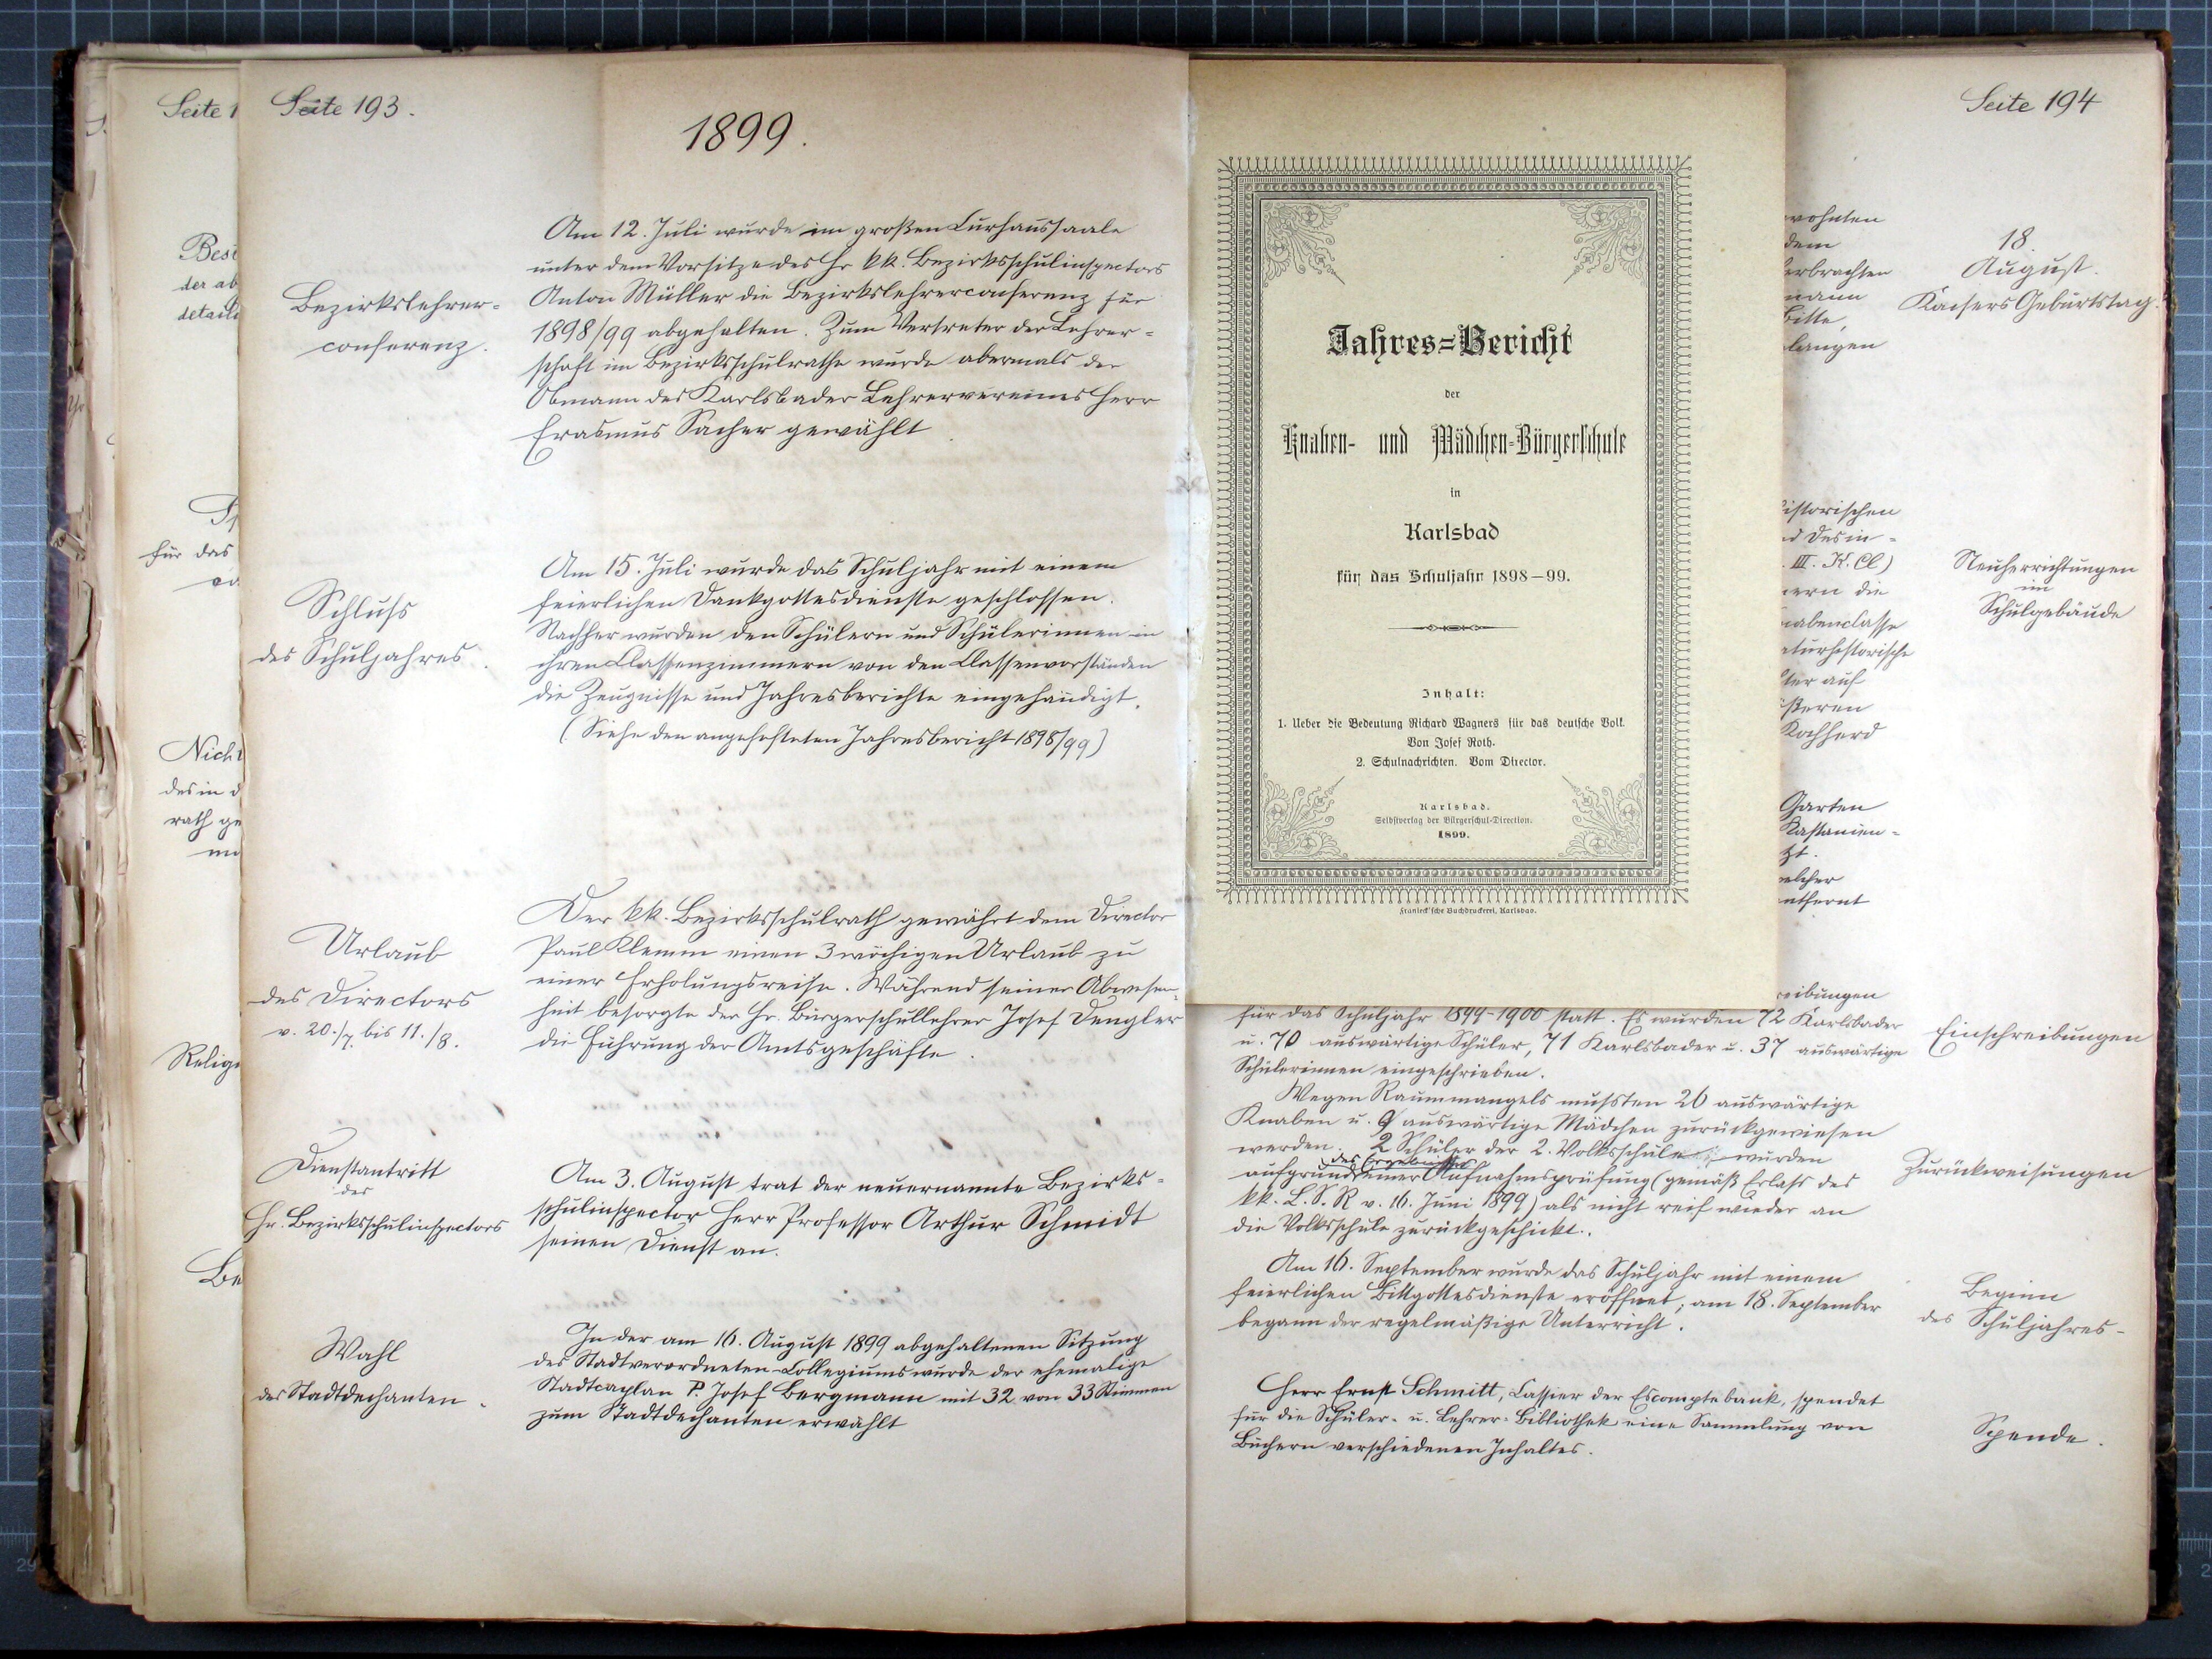 Seite 1
Seite 193.
1899.
Bezirkslehrer-
conferenz.
Am 12. Juli wurde im großen Curhaussaale
unter dem Vorsitze des Hr kk. Bezirksschulinspectors
Anton Müller die Bezirkslehrerconferenz für
1898/99 abgehalten. Zum Vertreter der Lehrer-
schaft im Bezirksschulrathe wurde abermals der
Obmann des Karlsbader Lehrervereines Herr
Erasmus Sacher gewählt
Schluß
des Schuljahres.
Am 15. Juli wurde das Schuljahr mit einem
feierlichen Dankgottesdienste geschlossen.
Nachher wurden den Schülern und Schülerinnen in
ihren Classenzimmern von den Classenvorständen
die Zeugnisse und Jahresberichte eingehändigt.
(Siehe den angehefteten Jahresbericht 1898/99)
Urlaub
des Directors
v. 20./7. bis 11./8.
Der kk. Bezirksschulrath gewährt dem Director
Paul Klemm einen 3 wöchigen Urlaub zu
einer Erholungsreise. Während seiner Abwesen-
heit besorgte der Hr. Bürgerschullehrer Josef Dengler
die Führung der Amtsgeschäfte.
Dienstantritt
des
Hr. Bezirksschulinspectors
Am 3. August trat der neuernannte Bezirks-
schulinspector Herr Professor Arthur Schmidt
seinen Dienst an.
Wahl
des Stadtdechanten.
In der am 16. August 1899 abgehaltenen Sitzung
des Stadtverordneten-Collegiums wurde der ehemalige
Stadtcaplan P. Josef Bergmann mit 32 von 33 Stimmen
zum Stadtdechanten erwählt
Jahres=Bericht
der
Knaben- und Mädchen-Bürgerschule
in
Karlsbad
für das Schuljahr 1898—99.
Inhalt:
1. Ueber die Bedeutung Richard Wagners für das deutsche Volk.
Von Josef Roth.
2. Schulnachrichten. Vom Director.
Karlsbad.
Selbstverlag der Bürgerschul-Direction.
1899.
Franieck'sche Buchdruckerei, Karlsbad.
Seite 194
wohnten
dem
erbrachten
mann
bitte,
langen
18.
August.
Kaisers Geburtstag.
istorischen
d des in-
III. K. Cl)
ern die
nabenclasse
aturhistorische
ter auf
ßeren
Kochherd
Neuherrichtungen
im
Schulgebäude
Garten
Kastanien-
zt.
welcher
ntfernt
reibungen
für das Schuljahr 1899-1900 statt. Es wurden 72 Karlsbader
u. 70 auswärtige Schüler, 71 Karlsbader u. 37 auswärtige
Schülerinnen eingeschrieben.
Einschreibungen
Wegen Raummangels mußten 26 auswärtige
Knaben u. 9 auswärtige Mädchen zurückgewiesen
werden. 2 Schüler der 2. Volksschule wurden
des Ergebnisses
aufgrund einer Aufnahmsprüfung (gemäß Erlaß des
kk. L. S. R v. 16. Juni 1899) als nicht reif wieder an
die Volksschule zurückgeschickt.
Zurückweisungen
Am 16. September wurde das Schuljahr mit einem
feierlichen Bittgottesdienste eröffnet; am 18. September
begann der regelmäßige Unterricht.
Beginn
des Schuljahres-
Herr Ernst Schmitt, Cassier der Escomptebank, spendet
für die Schüler- u. Lehrer-Bibliothek eine Sammlung von
Büchern verschiedenen Inhaltes.
Spende.